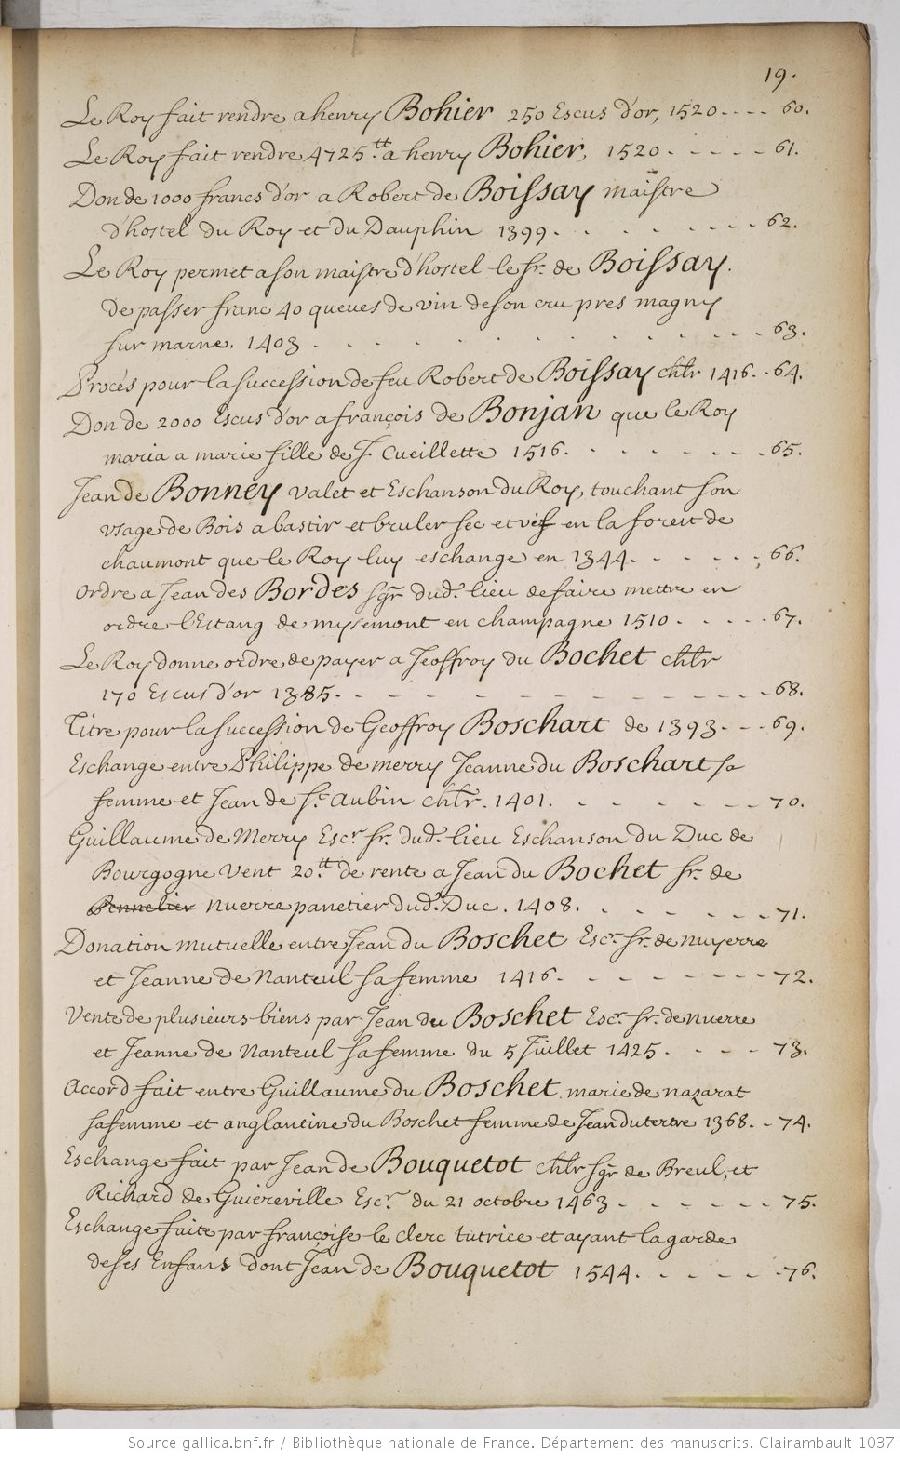 19.
Le Roy fait rendre a henry Bohier 250 Escus d'or, 1520 . . . . 60.
Le Roy fait rendre 4725.tt a henry Bohier, 1520 . - - - - - 61.
Don de 1000 francs d'or a Robert de Boissay maistre
d'hostel du Roy et du Dauphin 1399 . . . - - - - - 62.
Le Roy permet a son maistre d'hostel le sr. de Boissay.
de passer franc 40 queues de vin de son cru pres magny
sur marne. 1403 . . . . . . . - - - - - - 63.
Procés pour la succession de feu Robert de Boissay chlr 1416 . - 64.
Don de 2000 Escus d'or a françois de Bonjan que le Roy
maria a marie fille de J. Cueillette 1516 . . . . - - - 65.
Jean de Bonney valet et Eschanson du Roy, touchant son
vsage de Bois a bastir et bruler sec et vif en la forest de
chaumont que le Roy luy eschange en 1344 . - - - - - 66.
Ordre a Jean des Bordes sgr dud. lieu de faire mettre en
ordre l'Estang de mysemont en champagne 1510 . - - - - 67.
Le Roy donne ordre de payer a Jeoffroy du Bochet chlr
170 Escus d'or 1385 . - - - - - - - - - - - - 68.
Titre pour la succession de Geoffroy Boschart de 1393 . - - 69.
Eschange entre Philippe de merry Jeanne du Boschart sa
femme et Jean de St. Aubin chlr. 1401 . . - - - - - 70.
Guillaume de Merry Escr sr. dud. lieu Eschanson du Duc de
Bourgogne vent 20.tt de rente a Jean du Bochet sr. de
Nuerre panetier dud. Duc. 1408 . . - - - - - 71.
Donation mutuelle entre Jean du Boschet Escr. sr. de nuyerre
et Jeanne de Nanteul sa femme 1416 . - - - - - - - 72.
Vente de plusieurs biens par Jean du Boschet Escr. sr. de nuerre
et Jeanne de Nanteul sa femme du 5 Juillet 1425 . - - - 73.
Accord fait entre Guillaume du Boschet, marie de nazarat
sa femme et anglantine du Boschet femme de Jean du tertre 1368 . - 74.
Eschange fait par Jean de Bouquetot chlr sgr de Breul, et
Richard de Guiereville Escr. du 21 octobre 1463 . - - - - 75.
Eschange faite par françoise le clerc tutrice et ayant la garde
de ses Enfans dont Jean de Bouquetot 1544 . - - - - - 76.
Source gallica.bnf.fr / Bibliothèque nationale de France. Département des manuscrits. Clairambault 1037